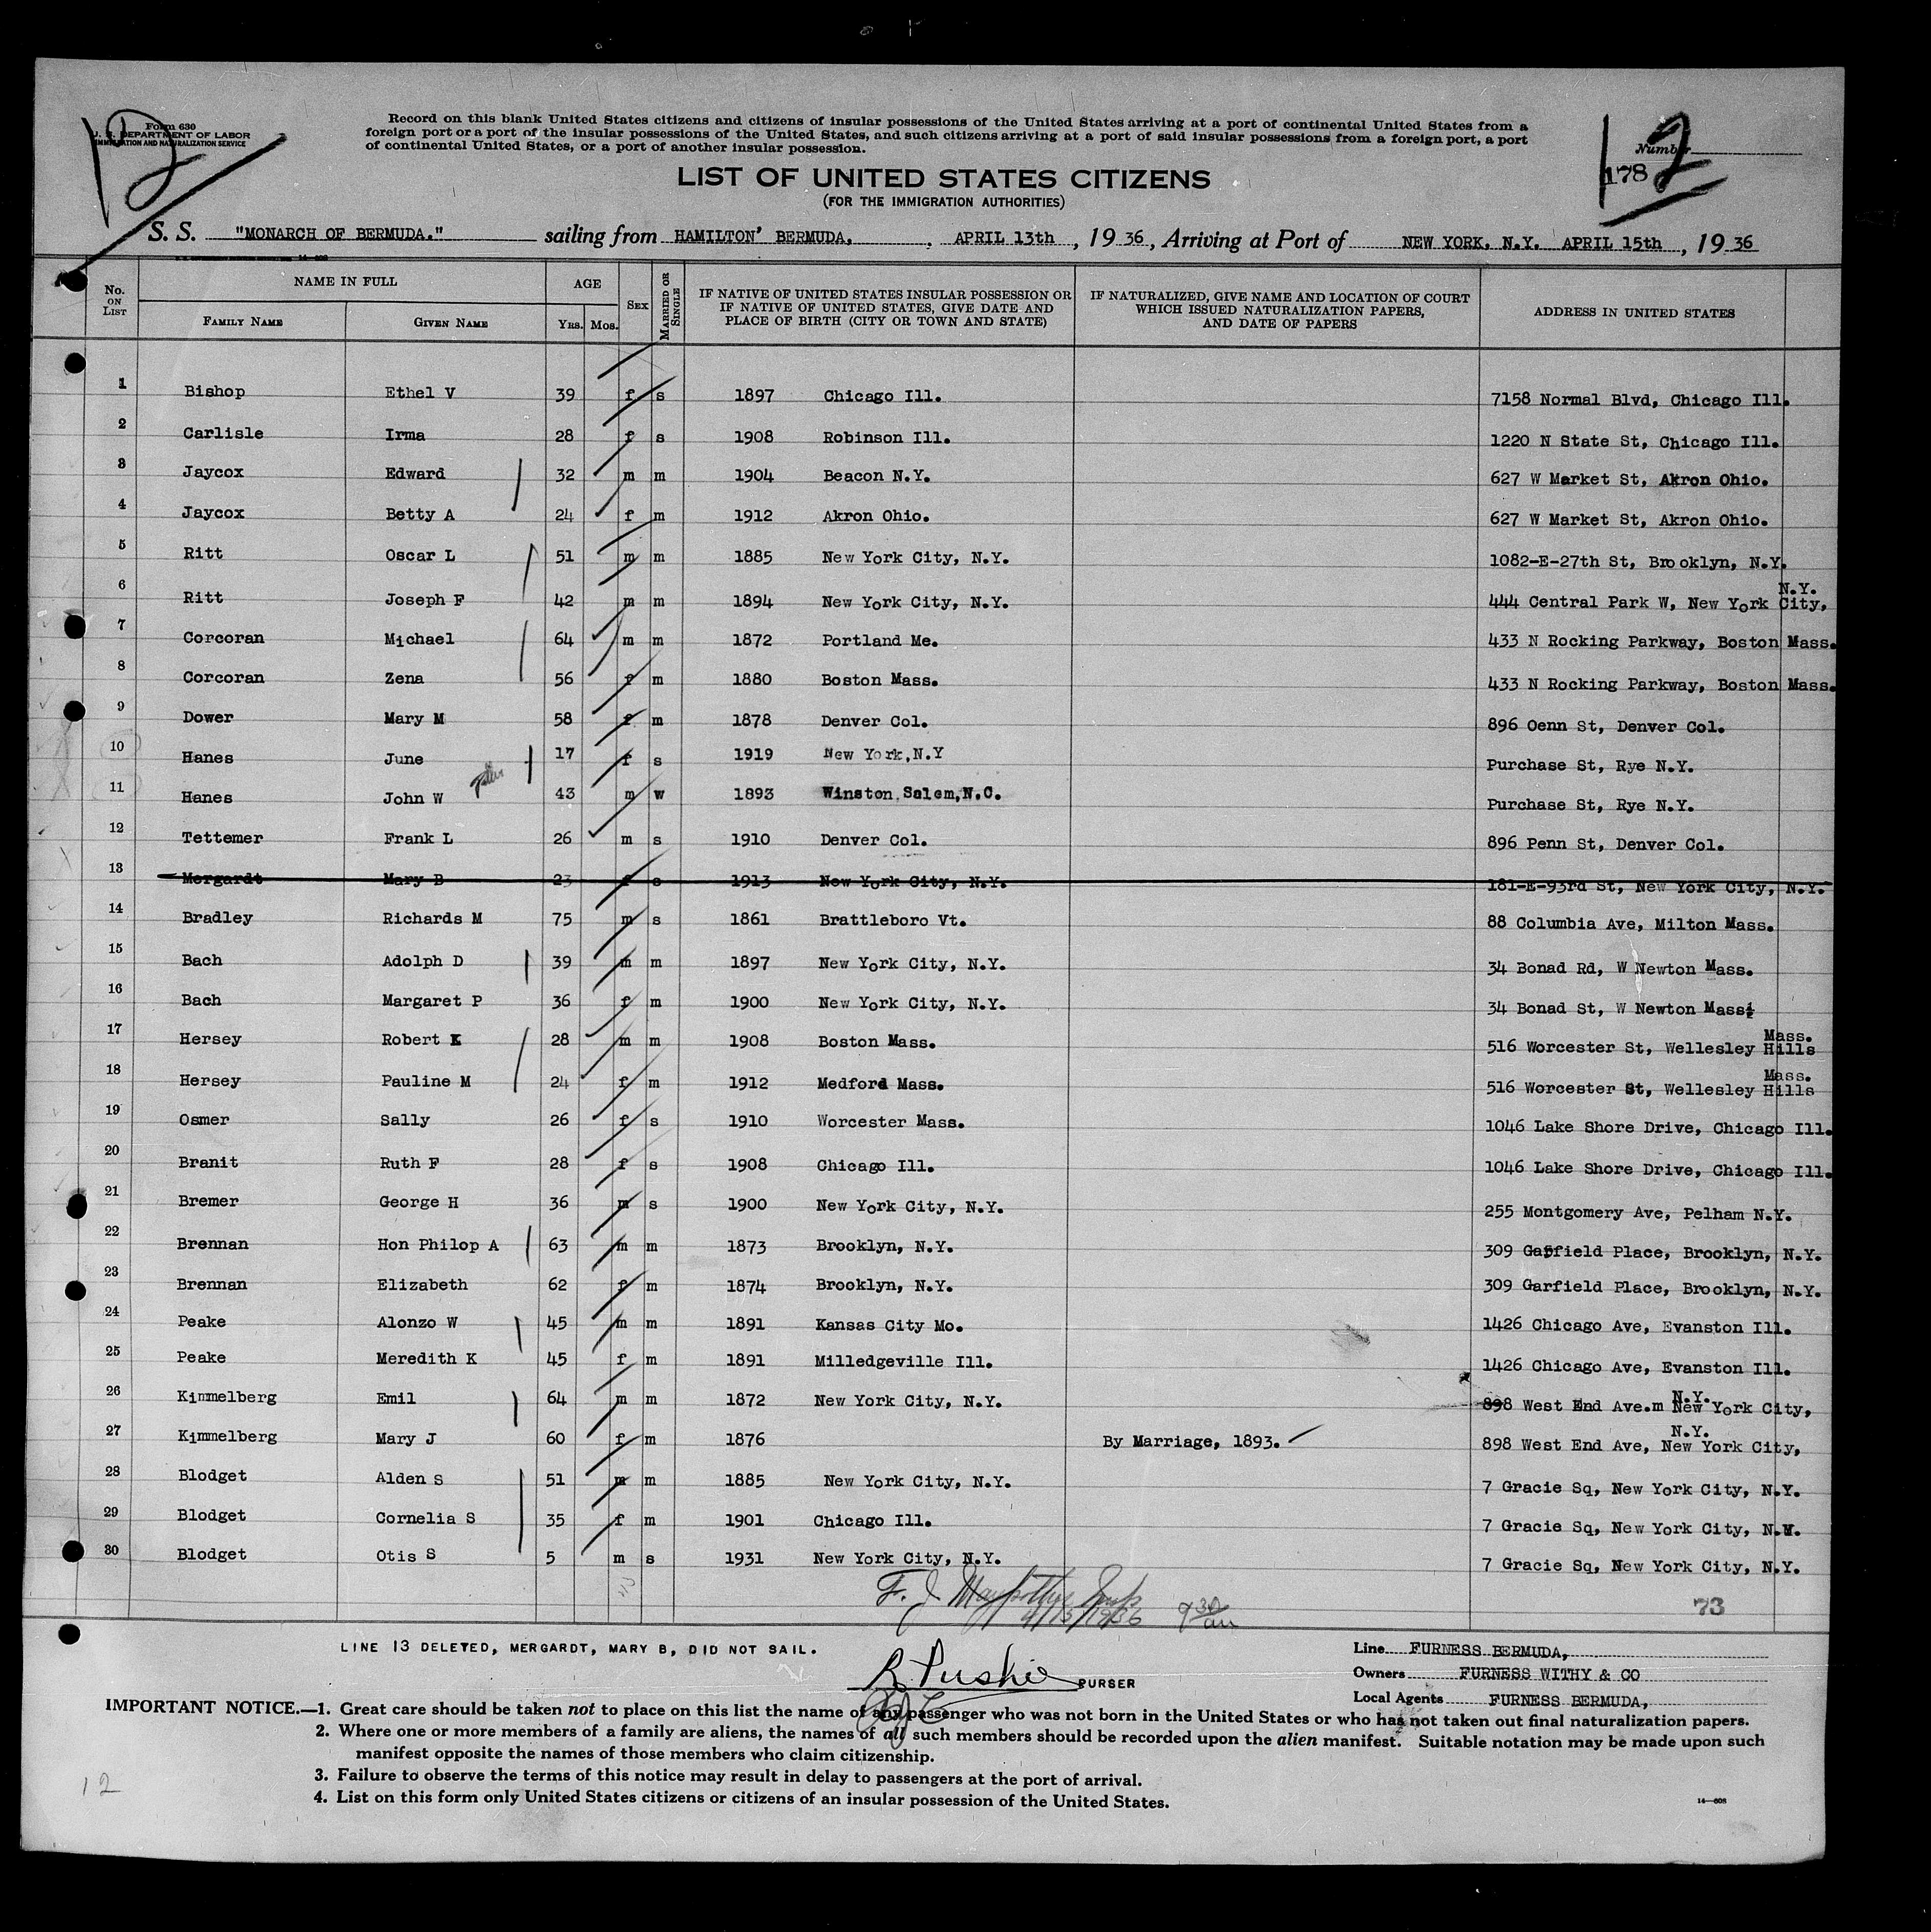 Form 630
U. S. DEPARTMENT OF LABOR
IMMIGRATION AND NATURALIZATION SERVICE
12
Record on this blank United States citizens and citizens of insular possessions of the United States arriving at a port of continental United States from a
foreign port or a port of the insular possessions of the United States, and such citizens arriving at a port of said insular possessions from a foreign port, a port
of continental United States, or a port of another insular possession.
Number
12
178
LIST OF UNITED STATES CITIZENS
(FOR THE IMMIGRATION AUTHORITIES)
S. S. "MONARCH OF BERMUDA." sailing from HAMILTON' BERMUDA, APRIL 13th, 19 36, Arriving at Port of NEW YORK, N.Y. APRIL 15th, 19 36
14—608
No. ON LIST NAME IN FULL FAMILY NAME GIVEN NAME AGE YRS. MOS. SEX MARRIED OR SINGLE IF NATIVE OF UNITED STATES INSULAR POSSESSION OR IF NATIVE OF UNITED STATES, GIVE DATE AND PLACE OF BIRTH (CITY OR TOWN AND STATE) IF NATURALIZED, GIVE NAME AND LOCATION OF COURT WHICH ISSUED NATURALIZATION PAPERS, AND DATE OF PAPERS ADDRESS IN UNITED STATES
1 Bishop Ethel V 39 f s 1897 Chicago Ill. 7158 Normal Blvd, Chicago Ill.
2 Carlisle Irma 28 f s 1908 Robinson Ill. 1220 N State St, Chicago Ill.
3 Jaycox Edward 32 m m 1904 Beacon N.Y. 627 W Market St, Akron Ohio.
4 Jaycox Betty A 24 f m 1912 Akron Ohio. 627 W Market St, Akron Ohio.
5 Ritt Oscar L 51 m m 1885 New York City, N.Y. 1082-E-27th St, Brooklyn, N.Y.
6 Ritt Joseph F 42 m m 1894 New York City, N.Y. 444 Central Park W, New York City, N.Y.
7 Corcoran Michael 64 m m 1872 Portland Me. 433 N Rocking Parkway, Boston Mass.
8 Corcoran Zena 56 f m 1880 Boston Mass. 433 N Rocking Parkway, Boston Mass.
9 Dower Mary M 58 f m 1878 Denver Col. 896 Oenn St, Denver Col.
10 Hanes June 17 f s 1919 New York,N.Y Purchase St, Rye N.Y.
11 Hanes John W 43 m w 1893 Winston Salem,N.C. Purchase St, Rye N.Y.
12 Tettemer Frank L 26 m s 1910 Denver Col. 896 Penn St, Denver Col.
13 Mergardt Mary B 23 f s 1913 New York City, N.Y. 181-E-93rd St, New York City, N.Y.
14 Bradley Richards M 75 m s 1861 Brattleboro Vt. 88 Columbia Ave, Milton Mass.
15 Bach Adolph D 39 m m 1897 New York City, N.Y. 34 Bonad Rd, W Newton Mass.
16 Bach Margaret P 36 f m 1900 New York City, N.Y. 34 Bonad St, W Newton Mass.
17 Hersey Robert K 28 m m 1908 Boston Mass. 516 Worcester St, Wellesley Hills Mass.
18 Hersey Pauline M 24 f m 1912 Medford Mass. 516 Worcester St, Wellesley Hills Mass.
19 Osmer Sally 26 f s 1910 Worcester Mass. 1046 Lake Shore Drive, Chicago Ill.
20 Branit Ruth F 28 f s 1908 Chicago Ill. 1046 Lake Shore Drive, Chicago Ill.
21 Bremer George H 36 m s 1900 New York City, N.Y. 255 Montgomery Ave, Pelham N.Y.
22 Brennan Hon Philop A 63 m m 1873 Brooklyn, N.Y. 309 Garfield Place, Brooklyn, N.Y.
23 Brennan Elizabeth 62 f m 1874 Brooklyn, N.Y. 309 Garfield Place, Brooklyn, N.Y.
24 Peake Alonzo W 45 m m 1891 Kansas City Mo. 1426 Chicago Ave, Evanston Ill.
25 Peake Meredith K 45 f m 1891 Milledgeville Ill. 1426 Chicago Ave, Evanston Ill.
26 Kimmelberg Emil 64 m m 1872 New York City, N.Y. 898 West End Ave.m New York City, N.Y.
27 Kimmelberg Mary J 60 f m 1876 By Marriage, 1893. 898 West End Ave, New York City, N.Y.
28 Blodget Alden S 51 m m 1885 New York City, N.Y. 7 Gracie Sq, New York City, N.Y.
29 Blodget Cornelia S 35 f m 1901 Chicago Ill. 7 Gracie Sq, New York City, N.Y.
30 Blodget Otis S 5 m s 1931 New York City, N.Y. 7 Gracie Sq, New York City, N.Y.
F. J.
4/15/1936 9 30 am
73
LINE 13 DELETED, MERGARDT, MARY B, DID NOT SAIL.
PURSER
Line FURNESS BERMUDA,
Owners FURNESS WITHY & CO
Local Agents FURNESS BERMUDA,
IMPORTANT NOTICE.—1. Great care should be taken not to place on this list the name of any passenger who was not born in the United States or who has not taken out final naturalization papers.
2. Where one or more members of a family are aliens, the names of all such members should be recorded upon the alien manifest. Suitable notation may be made upon such
manifest opposite the names of those members who claim citizenship.
3. Failure to observe the terms of this notice may result in delay to passengers at the port of arrival.
4. List on this form only United States citizens or citizens of an insular possession of the United States.
12
14—608